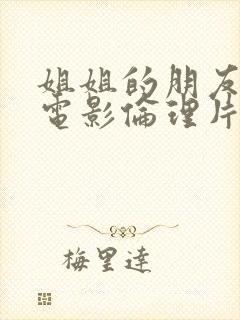 姐姐的朋友
電影倫理片
梅里達